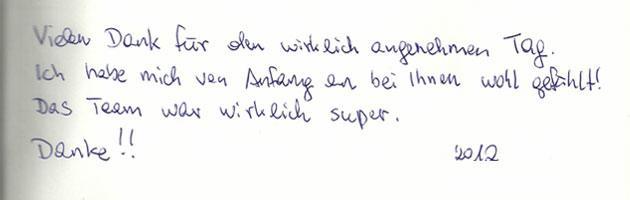 Vielen Dank für den wirklich angenehmen Tag.
Ich habe mich von Anfang an bei Ihnen wohl gefühlt!
Das Team war wirklich super.
Danke!! 2012